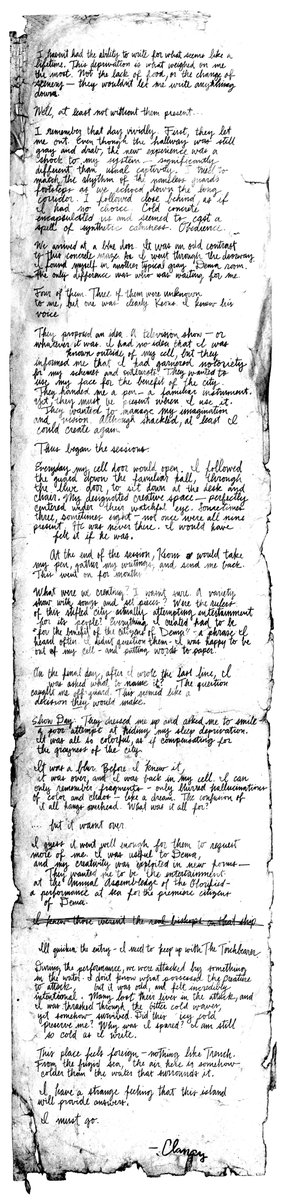 I hasn't had the ability to write for what seems like a
lifetime. This deprivation is what weighed on me
the most. Not the lack of food, or the change of
scenery - they wouldn't let me write anything
down.
Well, at least not without them present...
I remember that day vividly. First, they let
me out. Even though the hallway was still
gray and drab, the new experience was a
shock to my system - significantly
different than usual captivity. I
match the rhythm of the nameless guards
footsteps as we echoed down the long
corridor. I followed close behind, as if
I had no choice. Cold concrete
encapsulated us and seemed to cast a
spell of synthetic calmness. Obedience.
We arrived at a blue door. It was an odd contrast
to this concrete maze. As I went through the doorway
I found myself in another typical gray Dema room.
The only difference was who was waiting for me.
Four of them. Three of them were unknown
to me, but one was clearly Keons. I knew his
voice
They proposed an idea. A television show - or
whatever it was. I had no idea that I was
known outside of my cell, but they
informed me that I had garnered notoriety
for my schemes and outcries. They wanted to
use my face for the benefit of the city.
They handed me a pen - a familiar instrument.
Yet, they must be present when I use it.
They wanted to manage my imagination
and vision. Although shackled, at least I
could create again.
Thus began the sessions.
Everyday my cell door would open. I followed
the guard down the familiar hall, through
the blue door, to sit down at the desk and
chair. My designated creative space - perfectly
centered under their watchful eye. Sometimes
three, sometimes eight - not once were all nine
present. He was never there. I would have
felt it if he was.
At the end of the session, Keons would take
my pen, gather my writings, and send me back.
This went on for months.
What were we creating? I wasn't sure. A variety
show with songs and set pieces? Were the rulers
of this stifled city actually attempting entertainment
for its people? Everything I created had to be
"for the benefit of the citizens of Dema" - a phrase I
heard often. I didn't question them. I was happy to be
out of my cell - and putting words to paper.
On the final day, after I wrote the last line, I
was asked what to name it? The question
caught me off guard. This seemed like a
decision they would make.
Show Day: They dressed me up and asked me to smile
a poor attempt at hiding my sleep deprivation.
It was all so colorful, as if compensating for
the grayness of the city.
It was a blur. Before I knew it,
it was over, and I was back in my cell. I can
only remember fragments - only blurred hallucinations
of color and chaos - like a dream. The confusion of
it all hangs overhead. What was it all for?
... but it wasn't over.
I guess it went well enough for them to request
more of me. I was useful to Dema,
and my creativity was exploited in new forms -
They wanted me to be the entertainment
at the Annual Assemblage of the Glorified -
a performance at sea for the premiere citizens
of Dema.
I knew those weren't the real bishops on that ship
I'll quicken the entry - I need to keep up with The Torchbearer
During the performance, we were attacked by something
in the water. I don't know what possessed the creature
to attack, but it was odd, and felt incredibly
intentional. Many lost their lives in the attack, and
I was thrashed through the bitter cold waves,
yet somehow survived. Did this icy cold
preserve me? Why was I spared? I am still
so cold as I write.
This place feels foreign - nothing like Trench.
From the frigid sea, the air here is somehow
colder than the water that surrounds it.
I have a strange feeling that this island
will provide answers.
I must go.
- Clancy